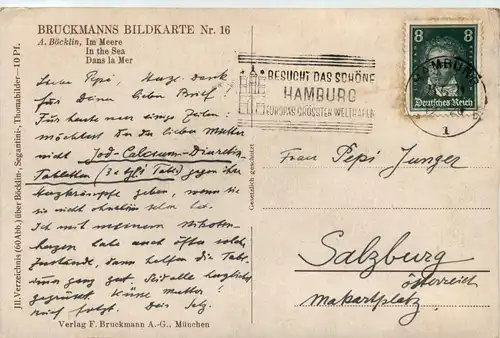 BRUCKMANNS BILDKARTE Nr. 16
A. Böcklin, Im Meere
In the Sea
Dans la Mer
Jll. Verzeichnis (60 Abb.) über Böcklin-, Segantini-, Thomabilder—10 Pf.
Liebe Pepi, Dank
für Deinen lieben Brief!
Für heute nur einige Zeilen:
möchtest Du der lieben Mutter
nicht Jod-Calcium-Diuretin
Tabletten (3 x tgl 1 Tabl) gegen ihre
Herzkrämpfe geben, wenn sie
sie nicht ohnehin schon hat.
Ich mit meinem Nikotin-
herzen habe auch öfter solche
Zustände, dann helfen die Tabl.
ganz gut. Seid alle herzlichst
gegrüsst. Küsse Mutter
Verlag F. Bruckmann A.-G., München
Gesetzlich geschützt
BESUCHT DAS SCHÖNE
HAMBURG
EUROPAS GRÖSSTEN WELTHAFEN
8 8
Deutsches Reich
HAMBURG
1
Frau Pepi Junger
Salzburg
Österreich
Makartplatz